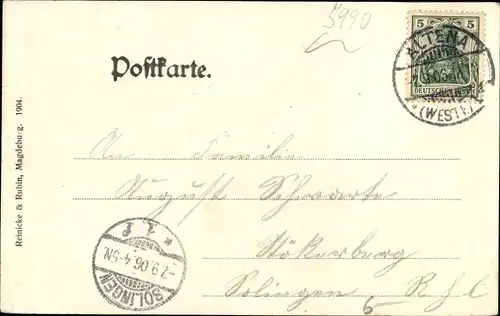 5990
5 5
ALTENA
DEUTSCHES REICH
(WESTF.)
Postkarte.
An Familie
August Schwarte
Stökerberg
Solingen Rhl
6
SOLINGEN
-7.9.06.4-5N.
* 1 f
Reinicke & Rubin, Magdeburg. 1904.